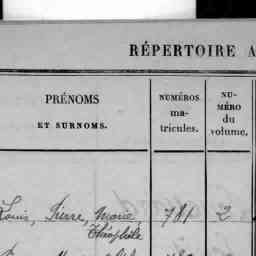 RÉPERTOIRE A
PRÉNOMS
ET SURNOMS.
NUMÉROS
ma-
tricules.
NU-
MÉRO
du
volume.
Louis, Pierre, Marie, 781 2
Théophile